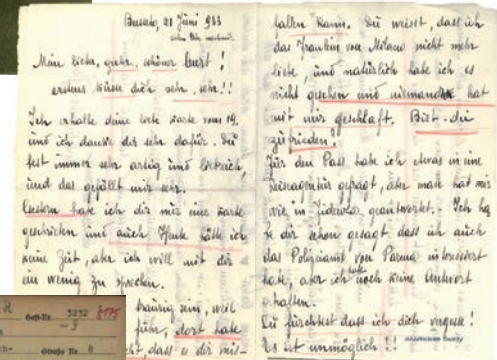 Busseto, 21 Juni 933
Mein lieber, guter, schöner Gert!
erstens küsse dich sehr, sehr!!
Ich erhalte deine liebe Karte vom 19.
und ich danke dir sehr dafür. Du
bist immer sehr artig und
und das gefällt mir sehr.
Gestern habe ich dir nur eine Karte
geschrieben und auch Heute hätte ich
keine Zeit, aber ich will mit dir
ein wenig zu sprechen.
traurig sein, weil
für, dort habe
dass es dir mis-
fallen kann. Du weisst, dass ich
das Fraulein von Milano nicht mehr
liebe, und natürlich habe ich es
nicht gesehen und niemand hat
mit mir geschlaft. Bist-du
zufrieden?
Für den Pass habe ich etwas in eine
Reiseagentur gefragt, aber man hat mir
wie in geantwortet. Ich ha
be dir schon gesagt dass ich auch
das Polizeiamt von Parma interessiert
habe, aber ich habe noch keine Antwort
erhalten.
Du fürchtest dass ich dich vergesse!
Es ist unmöglich!!
R
Gest.-Nr. 3232 8175
Straße Nr. 8